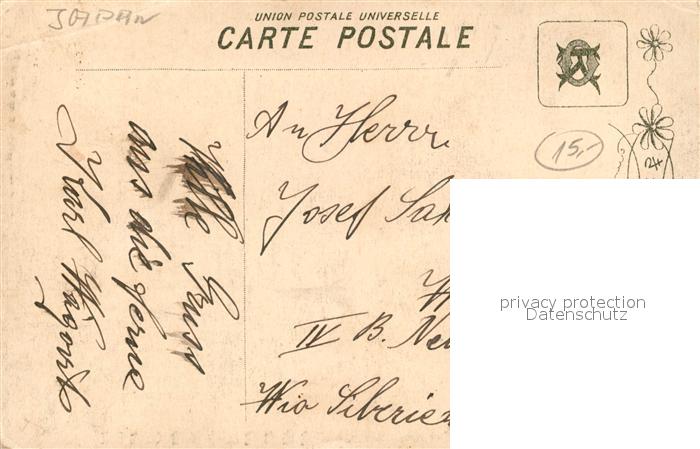 JAPAN
UNION POSTALE UNIVERSELLE
CARTE POSTALE
15,-
An Herrn
Josef Sak
W
IV B. Ne
Wia Siberie
Gruss
aus die ferne
Karl
privacy protection
Datenschutz